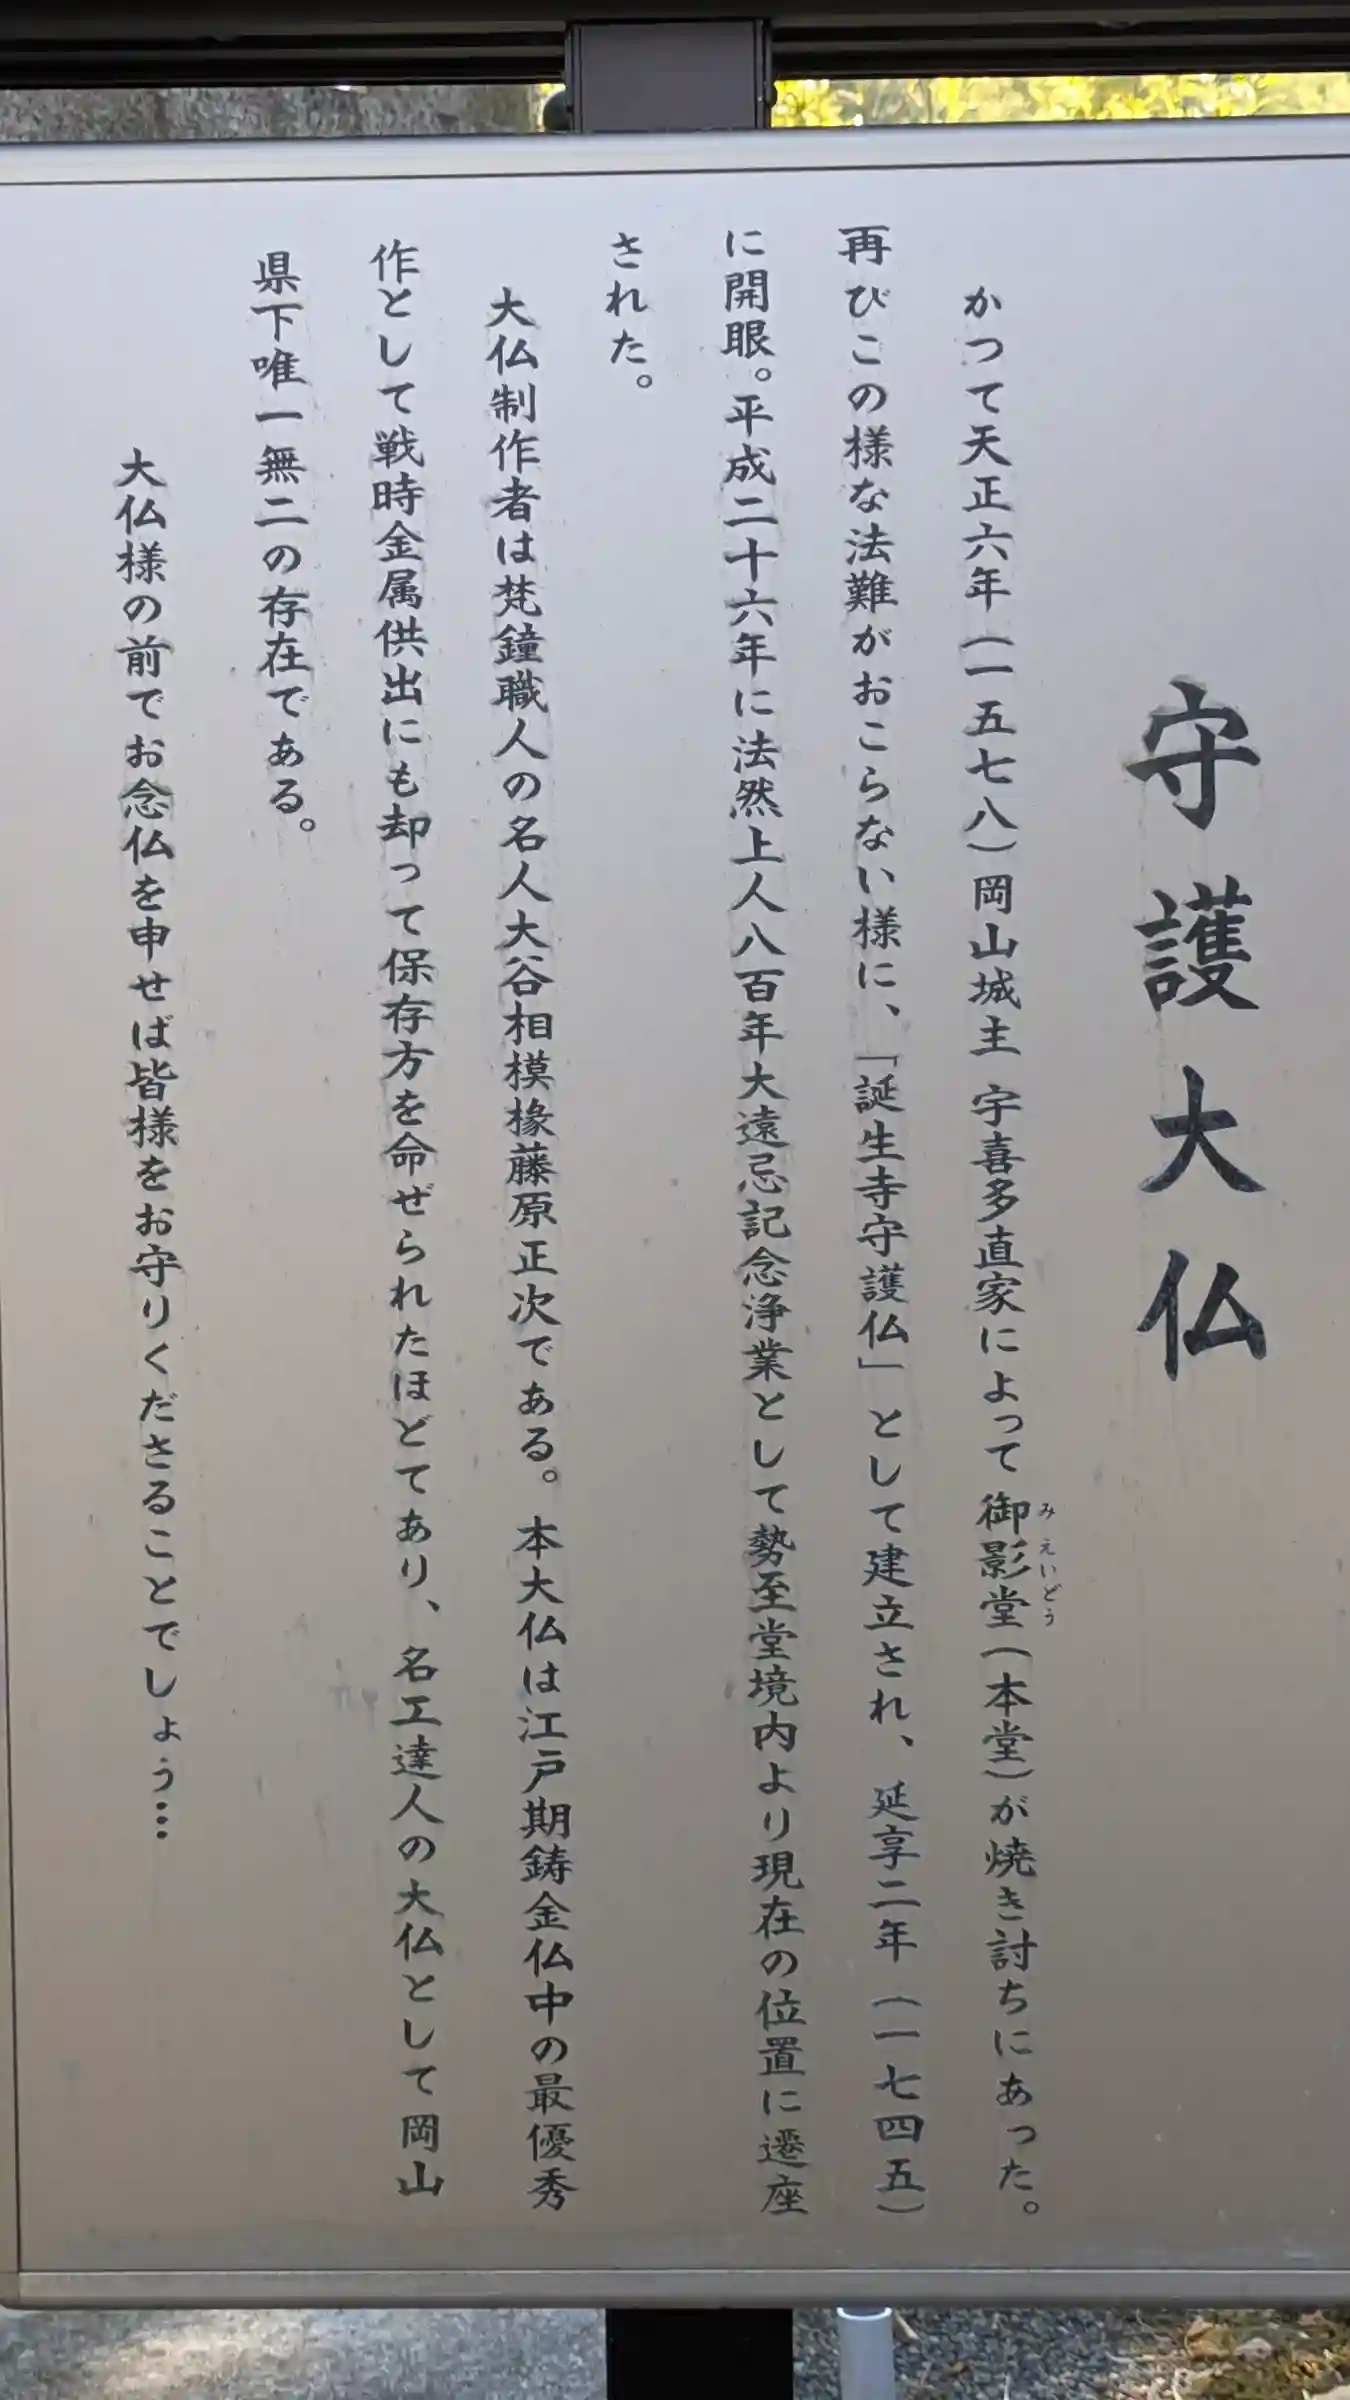 守護大仏
かつて天正六年(一五七八)岡山城主 宇喜多直家によって御影堂(本堂)が焼き討ちにあった。
みえいどう
再びこの様な法難がおこらない様に、「誕生寺守護仏」として建立され、延享二年(一七四五)
に開眼。平成二十六年に法然上人八百年大遠忌記念浄業として勢至堂境内より現在の位置に遷座
された。
大仏制作者は梵鐘職人の名人大谷相模椽藤原正次である。本大仏は江戸期鋳金仏中の最優秀
作として戦時金属供出にも却って保存方を命ぜられたほどてあり、名工達人の大仏として岡山
県下唯一無二の存在である。
大仏様の前でお念仏を申せば皆様をお守りくださることでしょう…